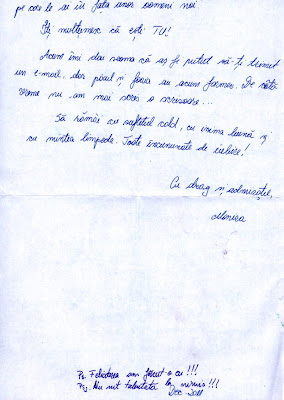 pe care le ai în fața unor oameni noi
Îți mulțumesc că ești TU!
Acum îmi dau seama că aș fi putut să-ți trimit
un e-mail, dar pixul și foaia au acum farmec. De câtă
vreme nu am mai scris o scrisoare...
Să rămâi cu sufletul cald, cu inima bună și
cu mintea limpede. Toate încununate de iubire!
Cu drag și admirație,
Monica
Ps. Felicitarea am făcut-o eu!!!
Ps2. Nu uit talentata la nimic!!!
Dec 2011